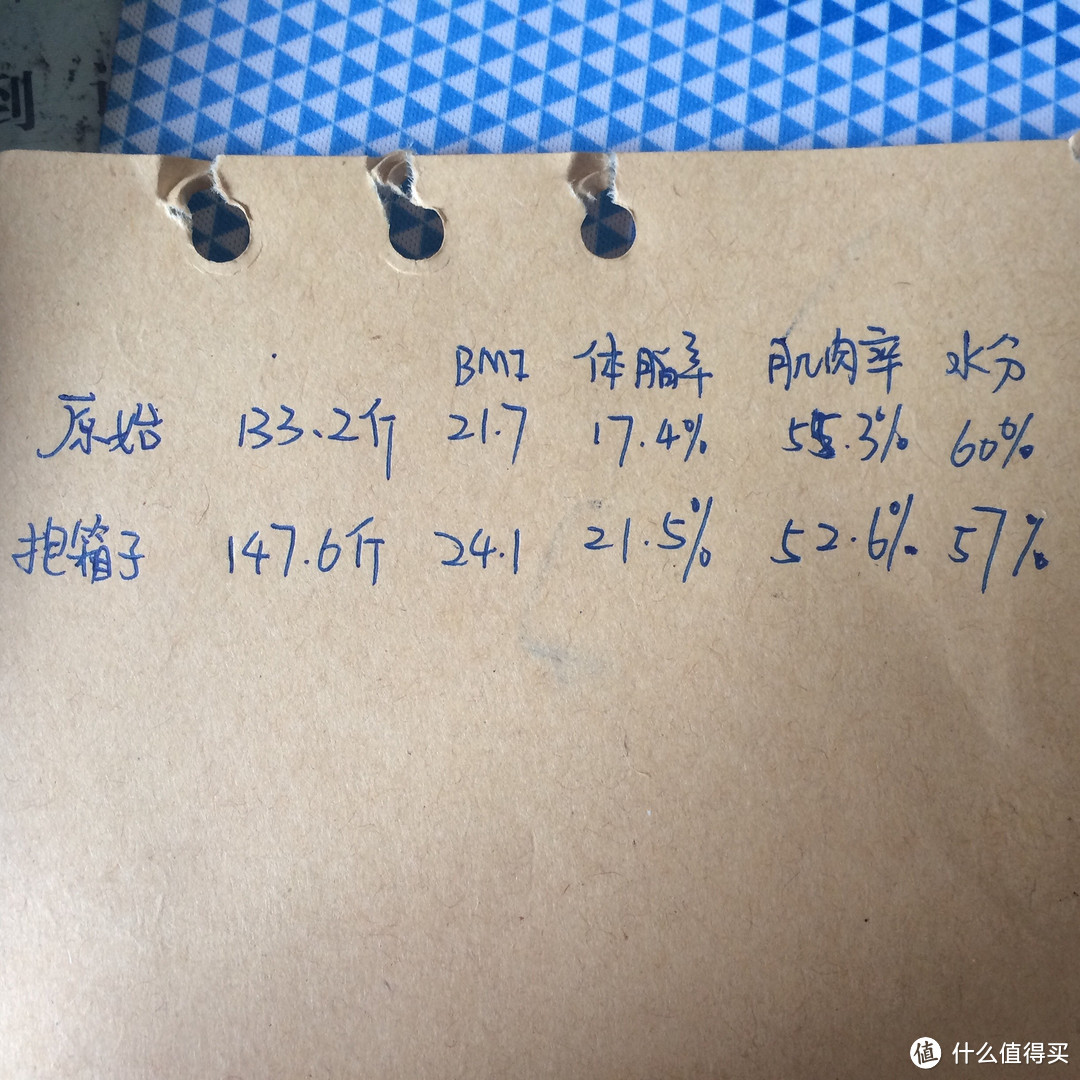 到
BMI 体脂率 肌肉率 水分
原始 133.2斤 21.7 17.4% 55.3% 60%
抱箱子 147.6斤 24.1 21.5% 52.6% 57%
值 什么值得买